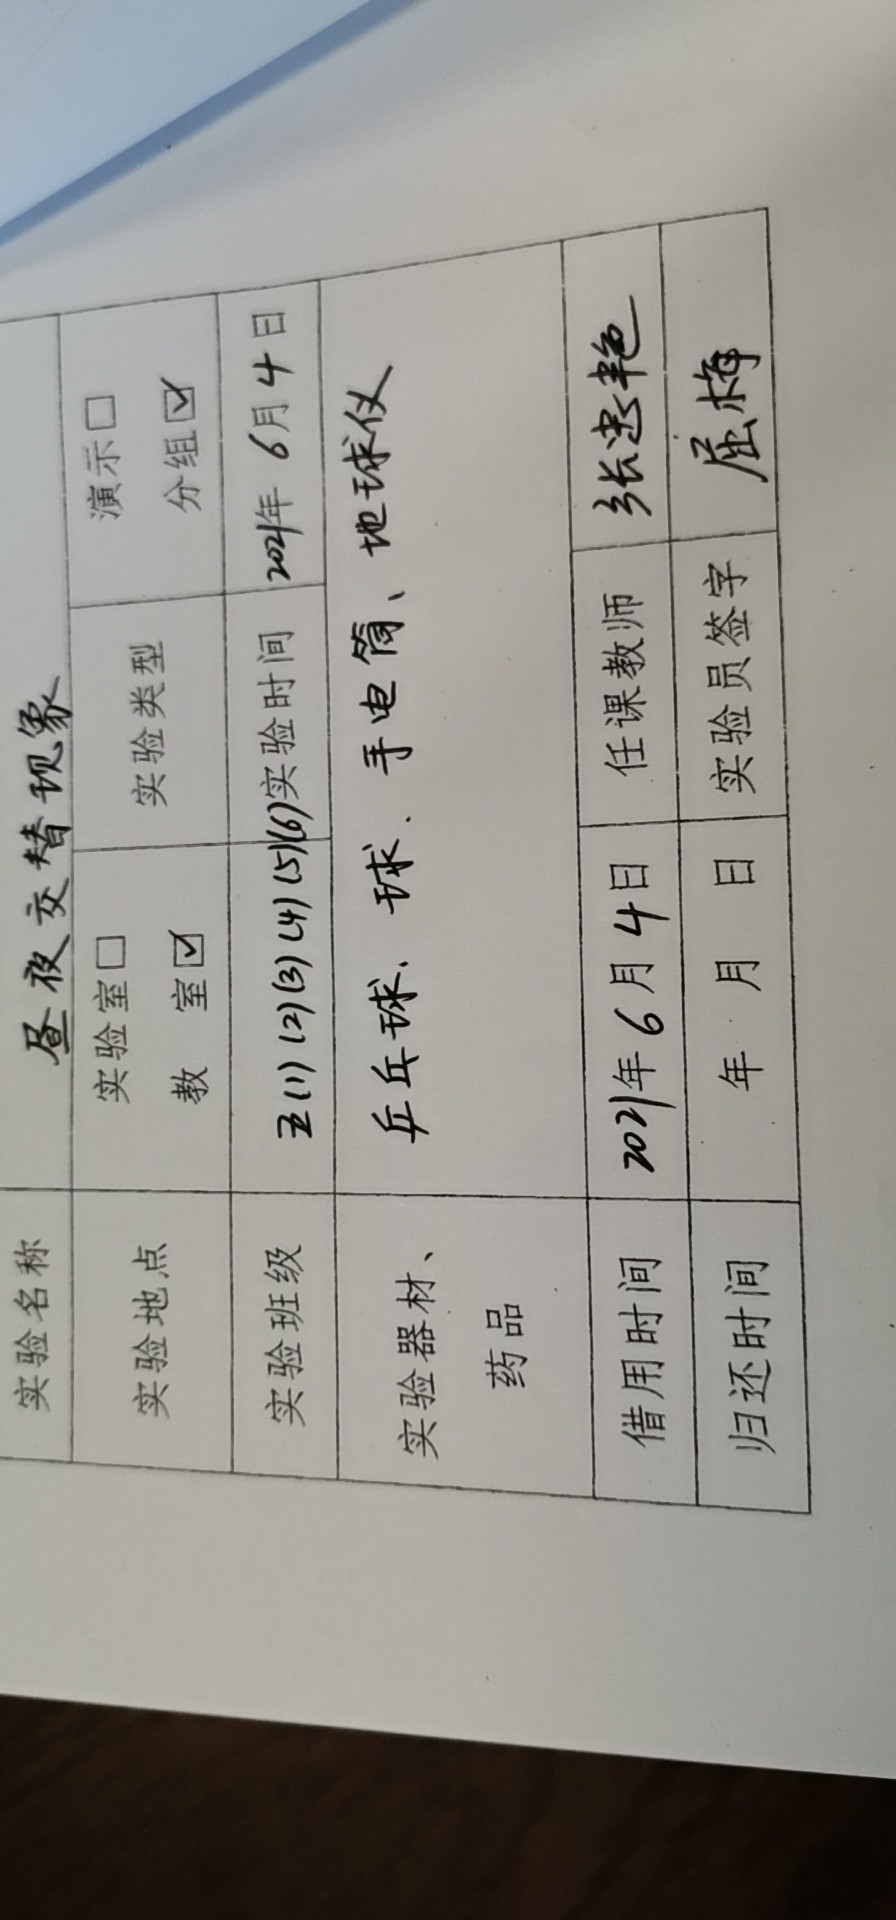 实验名称 昼夜交替现象
实验地点 实验室☐ 实验类型 演示☐
教 室☑ 分组☑
实验班级 五(1)(2)(3)(4)(5)(6) 实验时间 2021年6月4日
实验器材、 乒乓球、球、手电筒、地球仪
药品
借用时间 2021年6月4日 任课教师 张忠艳
归还时间 年 月 日 实验员签字 屈梅